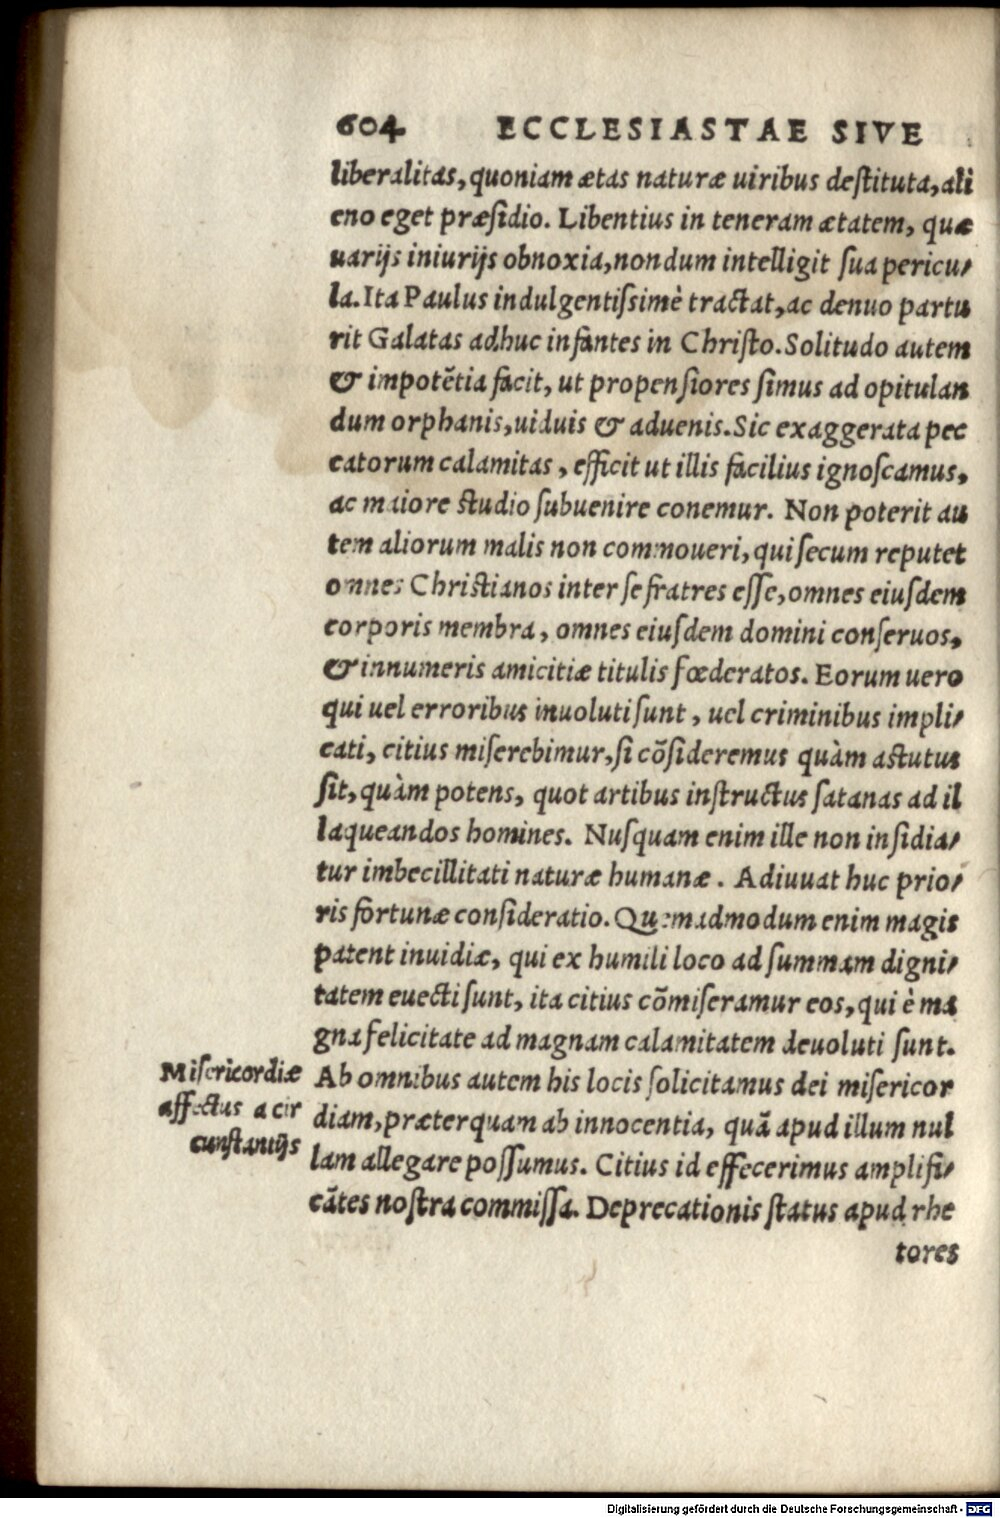 604 ECCLESIASTAE SIVE
liberalitas, quoniam ætas naturæ uiribus destituta, ali
eno eget præsidio. Libentius in teneram ætatem, quæ
uarijs iniurijs obnoxia, nondum intelligit sua pericu/
la. Ita Paulus indulgentissimè tractat, ac denuo partu
rit Galatas adhuc infantes in Christo. Solitudo autem
& impotẽtia facit, ut propensiores simus ad opitulan
dum orphanis, uiduis & aduenis. Sic exaggerata pec
catorum calamitas, efficit ut illis facilius ignoscamus,
ac maiore studio subuenire conemur. Non poterit au
tem aliorum malis non commoueri, qui secum reputet
omnes Christianos inter se fratres esse, omnes eiusdem
corporis membra, omnes eiusdem domini conseruos,
& innumeris amicitiæ titulis fœderatos. Eorum uero
qui uel erroribus inuoluti sunt, uel criminibus impli/
cati, citius miserebimur, si cõsideremus quàm astutus
sit, quàm potens, quot artibus instructus satanas ad il
laqueandos homines. Nusquam enim ille non insidia/
tur imbecillitati naturæ humanæ. Adiuuat huc prio/
ris fortunæ consideratio. Quemadmodum enim magis
patent inuidiæ, qui ex humili loco ad summam digni/
tatem euecti sunt, ita citius cõmiseramur eos, qui è ma
gna felicitate ad magnam calamitatem deuoluti sunt.
Ab omnibus autem his locis solicitamus dei misericor
diam, præterquam ab innocentia, quã apud illum nul
lam allegare possumus. Citius id effecerimus amplifi/
cãtes nostra commissa. Deprecationis status apud rhe
tores
Misericordiæ
affectus a cir
cunstantijs
Digitalisierung gefördert durch die Deutsche Forschungsgemeinschaft - DFG